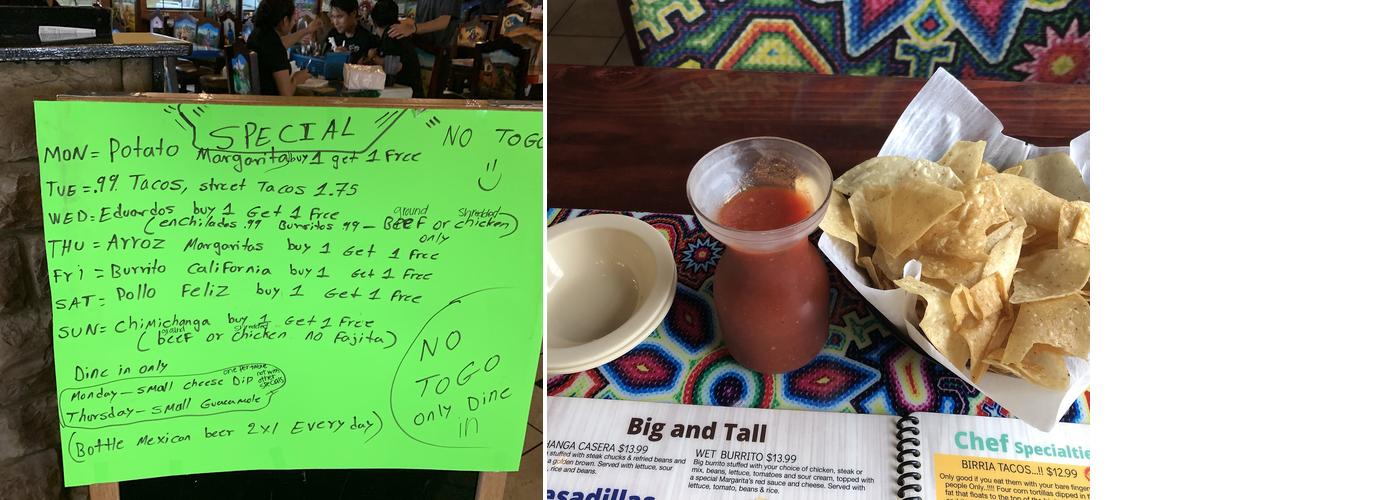 SPECIAL
NO TOGO
MON= Potato Margarita buy 1 get 1 Free
TUE = .99 Tacos, street Tacos 1.75
WED= Eduardos buy 1 Get 1 Free
(enchiladas .99 Burritos 99 - ground BEEF or shredded chicken)
only
THU = Arroz Margaritos buy 1 Get 1 Free
Fri = Burrito California buy 1 Get 1 Free
SAT= Pollo Feliz buy 1 Get 1 Free
SUN= Chimichanga buy 1 Get 1 Free
(ground beef or shredded chicken no Fajita)
Dine in only
Monday - small cheese Dip
Thursday - small Guacamole
(Bottle Mexican beer 2x1 Every day)
NO
TOGO
only Dine
in
Big and Tall
HANGA CASERA $13.99
stuffed with steak chucks & refried beans and
a golden brown. Served with lettuce, sour
rice and beans.
WET BURRITO $13.99
Big burrito stuffed with your choice of chicken, steak or
mix, beans, lettuce, tomatoes and sour cream, topped with
a special Margarita's red sauce and cheese. Served with
lettuce, tomato, beans & rice.
esadillas
Chef Specialtie
BIRRIA TACOS...!! $12.99
Only good if you eat them with your bare finger
people Only..!!!! Four corn tortillas dipped in t
fat that floats to the top of the bi